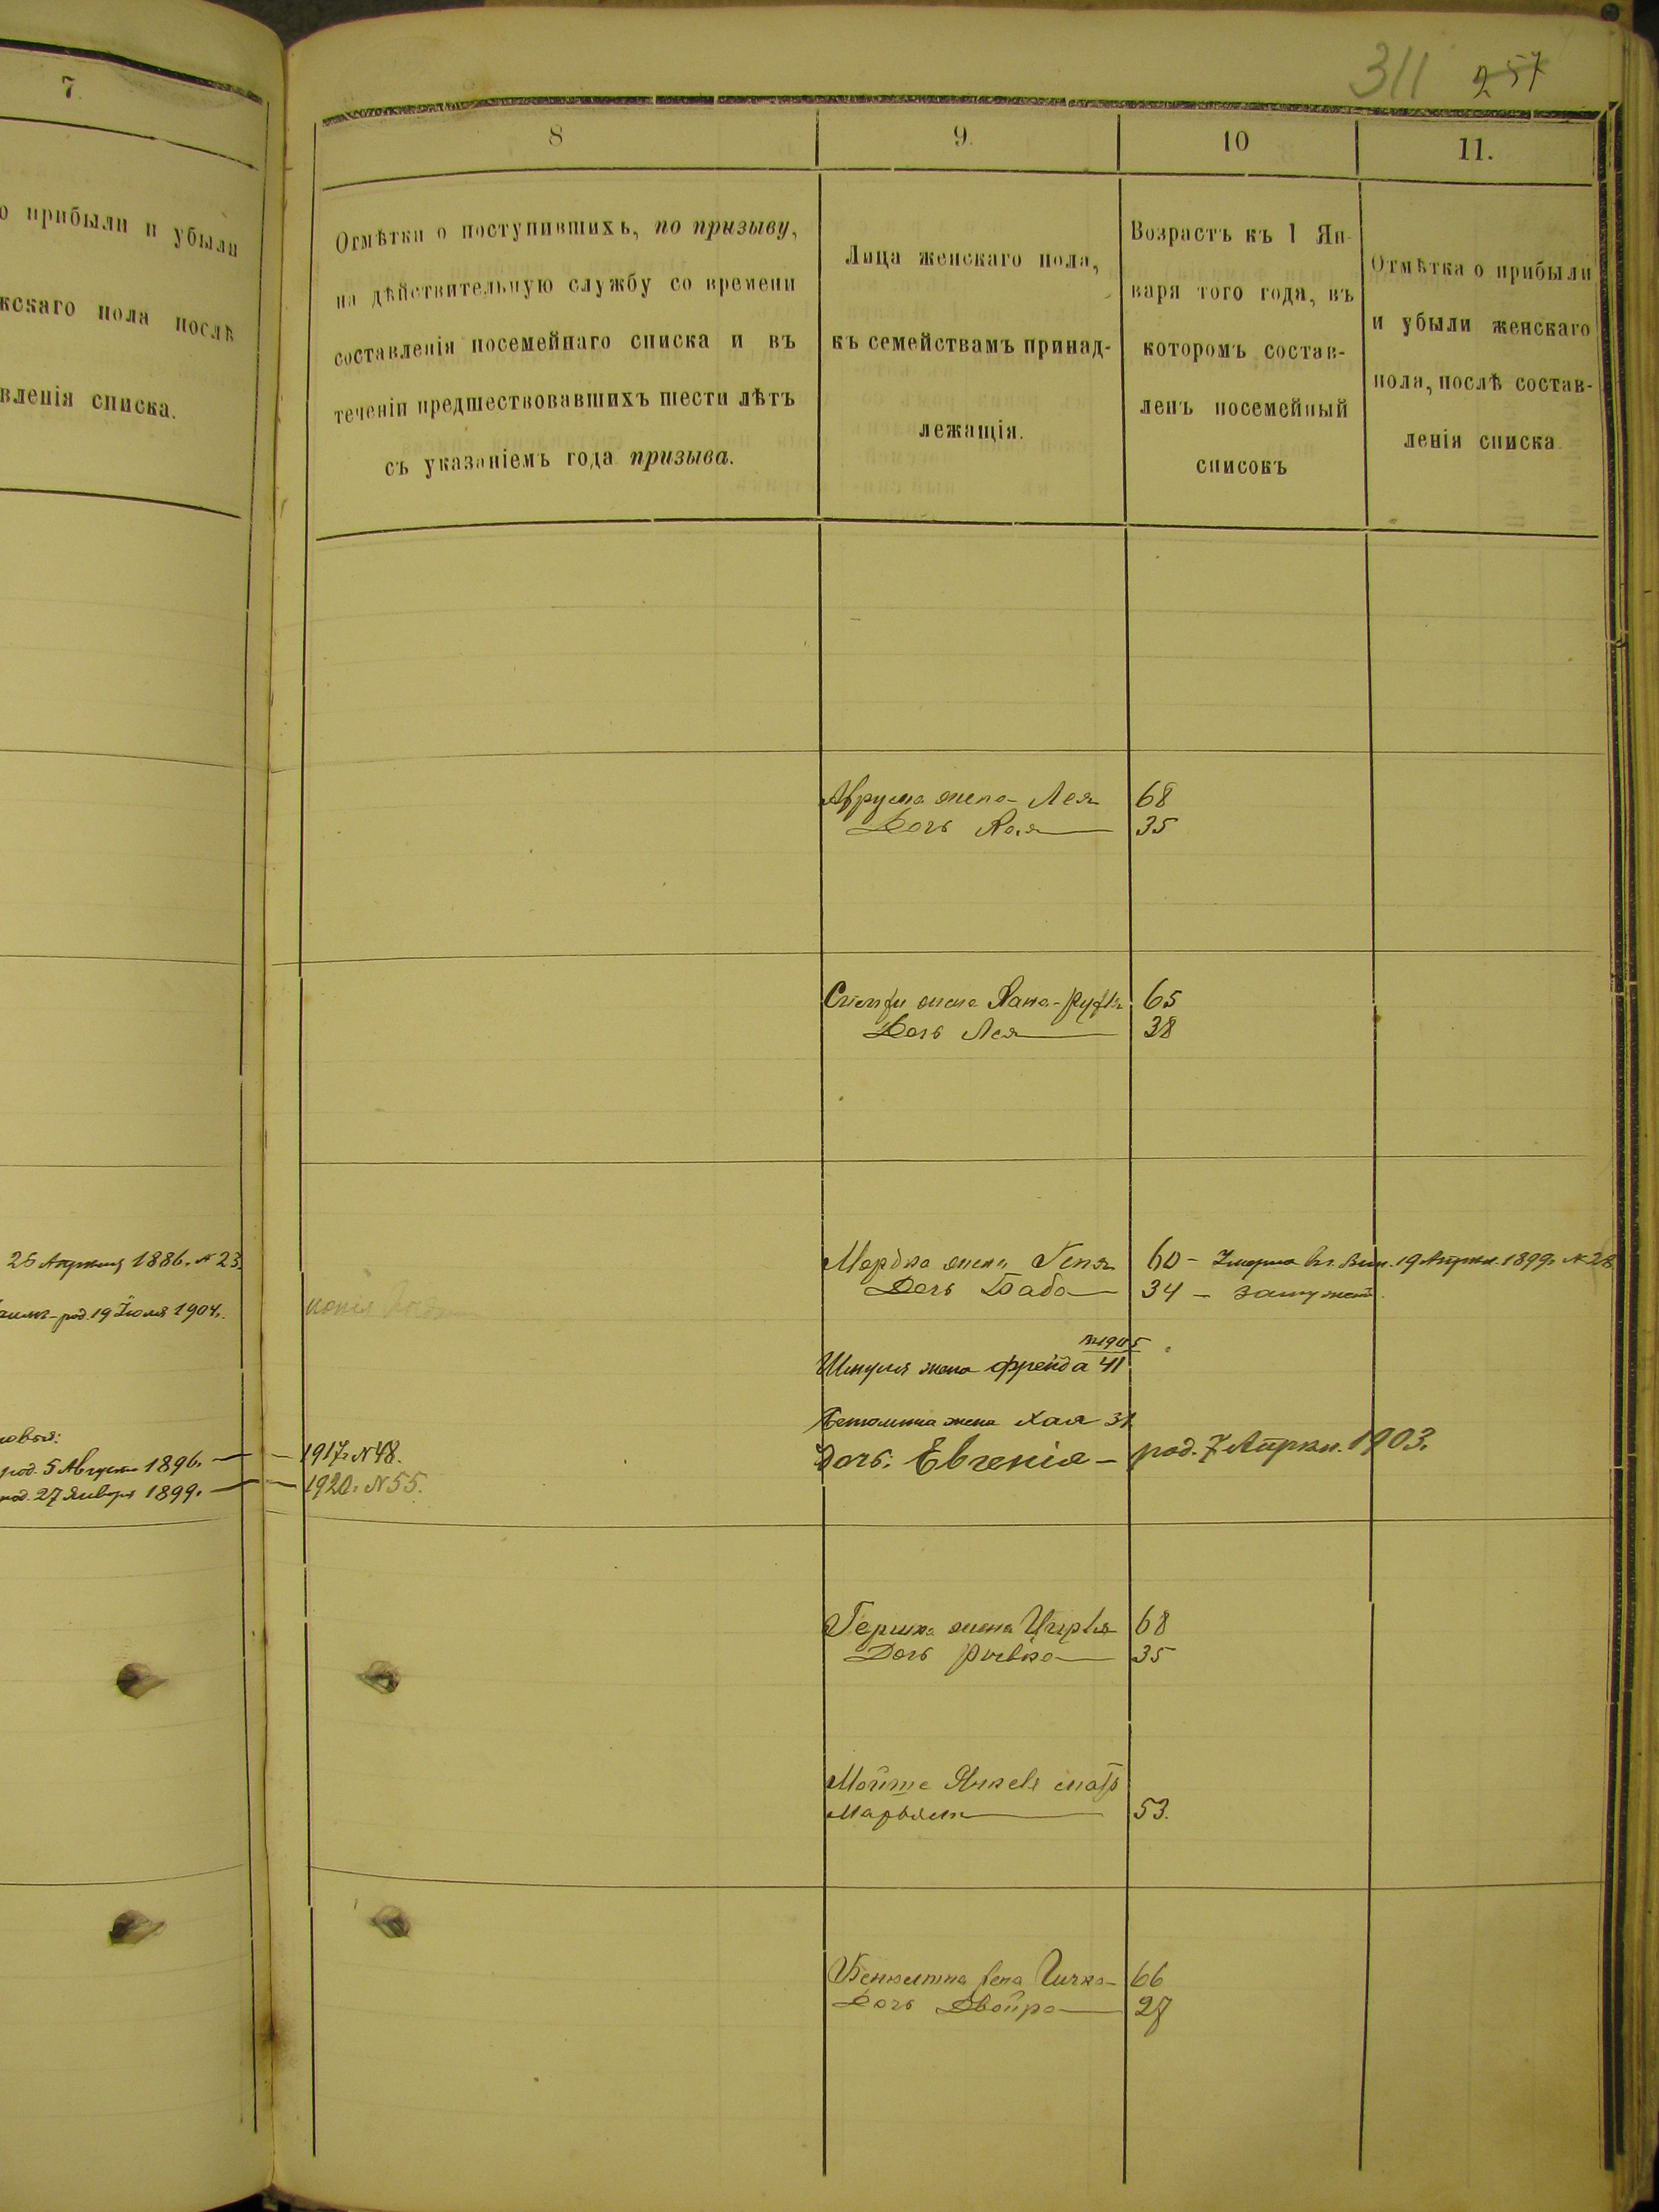 311 257
7.
о прибыли и убыли
жскаго пола послѣ
вленія списка.
26 Апрѣля 1886. № 23.
род. 19 Іюля 1904.
род. 5 Августа 1896. —
род. 27 Января 1899. —
8
Отмѣтки о поступившихъ, по призыву,
на дѣйствительную службу со времени
составленія посемейнаго списка и въ
теченіи предшествовавшихъ шести лѣтъ
съ указаніемъ года призыва.
копія
— 1917. № 48.
— 1920. № 55.
9.
Лица женскаго пола,
къ семействамъ принад-
лежащія.
10
Возрастъ къ 1 Ян-
варя того года, въ
которомъ состав-
ленъ посемейный
списокъ
11.
Отмѣтка о прибыли
и убыли женскаго
пола, послѣ состав-
ленія списка.
Аврума жена Лея 68
Дочь Хая 35
жена Хана-Рухля 65
Дочь Лея 38
Мордка жена Геня 60 — Умерла 19 Апрѣл. 1899 № 28
Дочь Баба 34 — замужемъ
1905
Шмуля жена Фрейда 41
жена Хая 31
дочь: Евгенія — род. 7 Апрѣл. 1903.
Гершка жена 68
Дочь Ривка 35
Мойше Янкеля мать
Марьям 53.
жена 66
Дочь Двойра 27